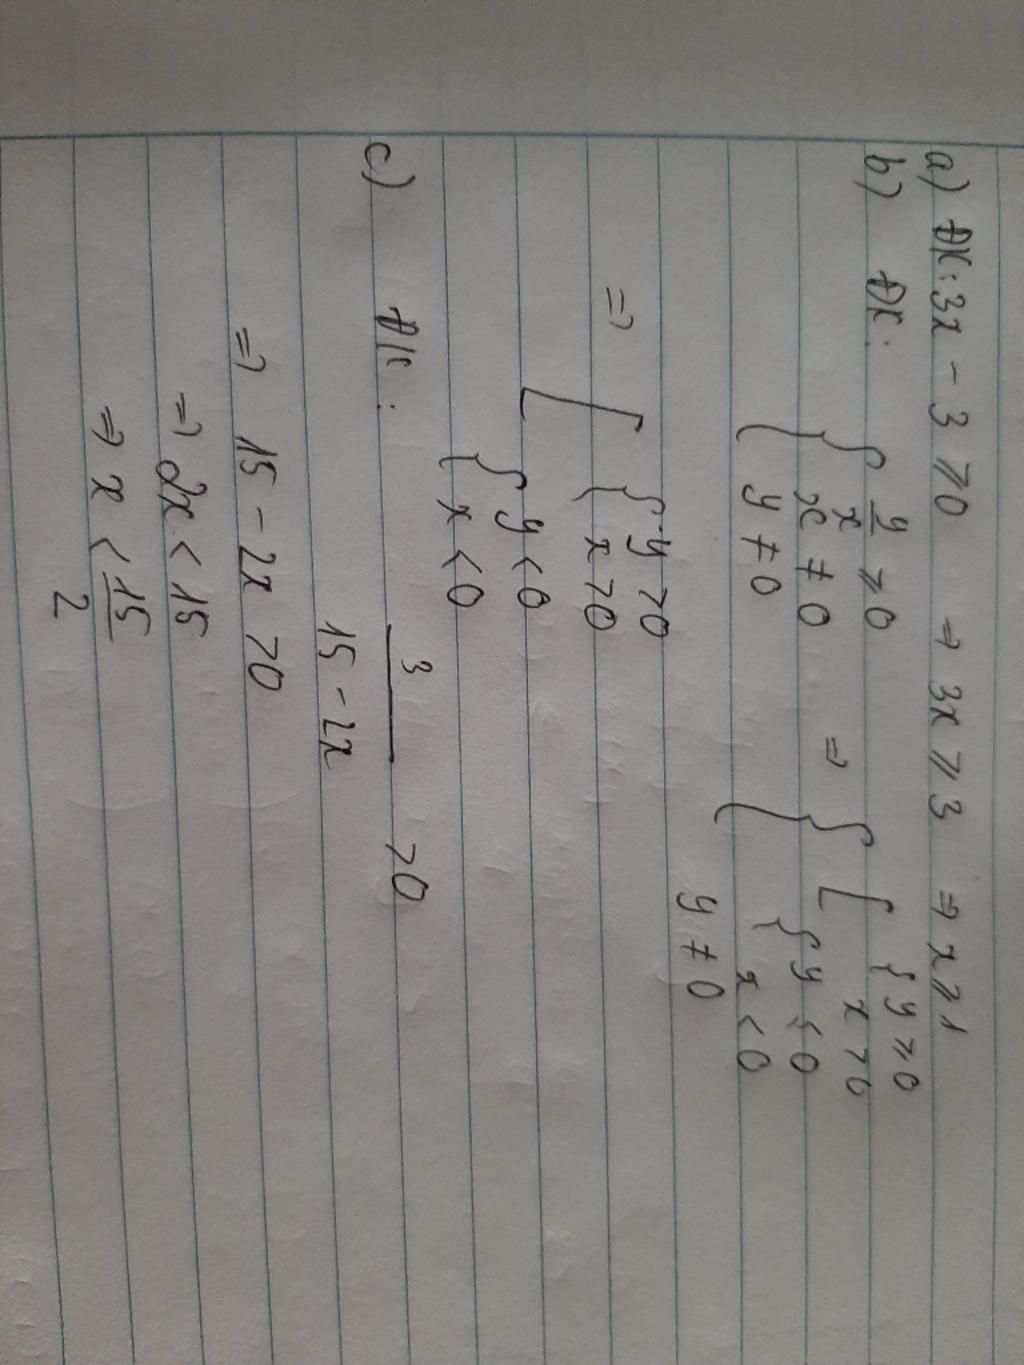 a) ĐK: 3x - 3 ⩾ 0 ⇒ 3x ⩾ 3 ⇒ x ⩾ 1
b) ĐK: { y/x ⩾ 0 ⇒ { [ { y ⩾ 0
x ≠ 0 x > 0
y ≠ 0 { y ⩽ 0
x < 0
y ≠ 0
⇒ [ { y > 0
x > 0
{ y < 0
x < 0
c) ĐK: 3/(15 - 2x) > 0
⇒ 15 - 2x > 0
⇒ 2x < 15
⇒ x < 15/2